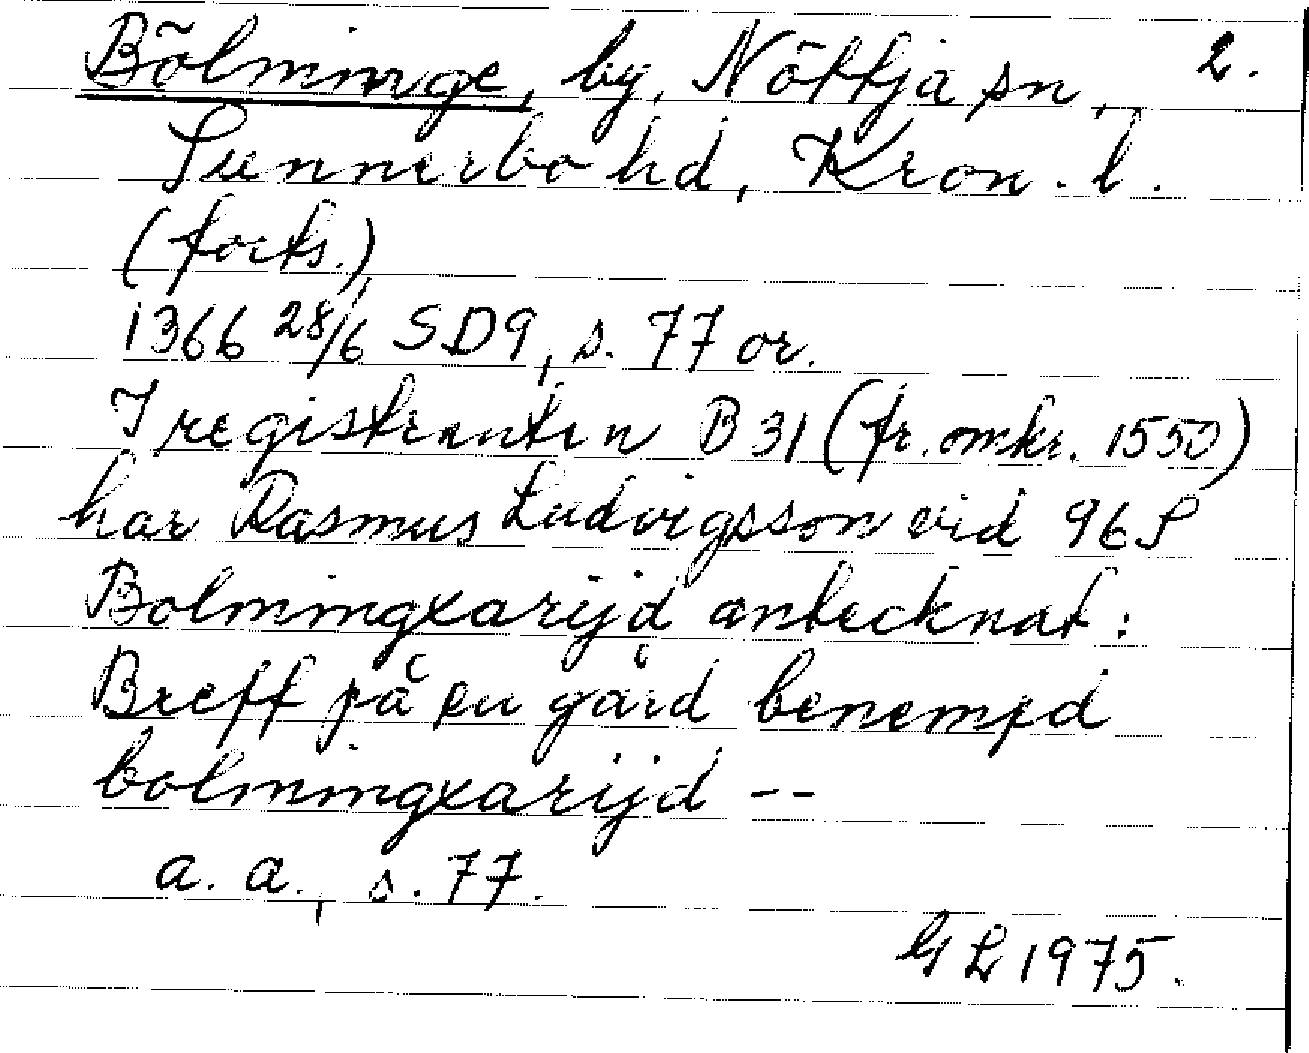 Bölminge, by, Nöttja sn, 2.
Sunnerbo hd, Kron. l.
(forts.)
1366 28/6 SD9, s. 77 or.
I registranten B 31 (fr. omkr. 1550)
har Rasmus Ludvigsson vid 96 S
Bolmingxarijd antecknat:
Breff på en gård benempd
bolmingxarijd --
a. a., s. 77.
GL 1975.